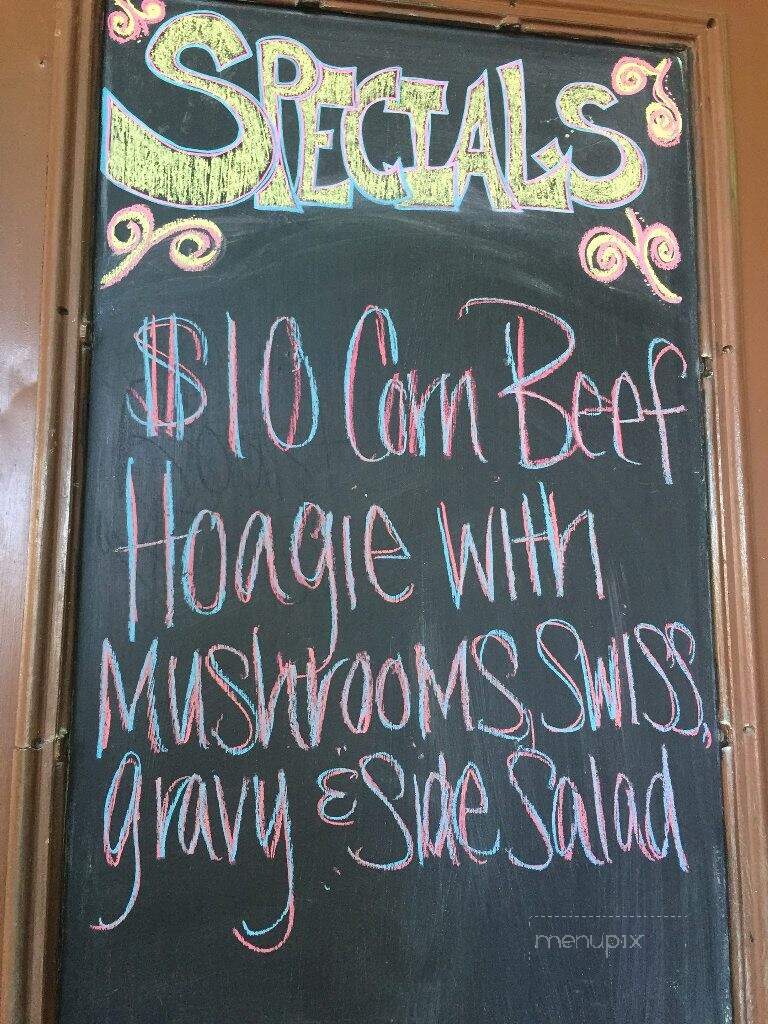 SPECIALS
$10 Corn Beef
Hoagie with
Mushrooms, Swiss,
gravy & Side Salad
menupix